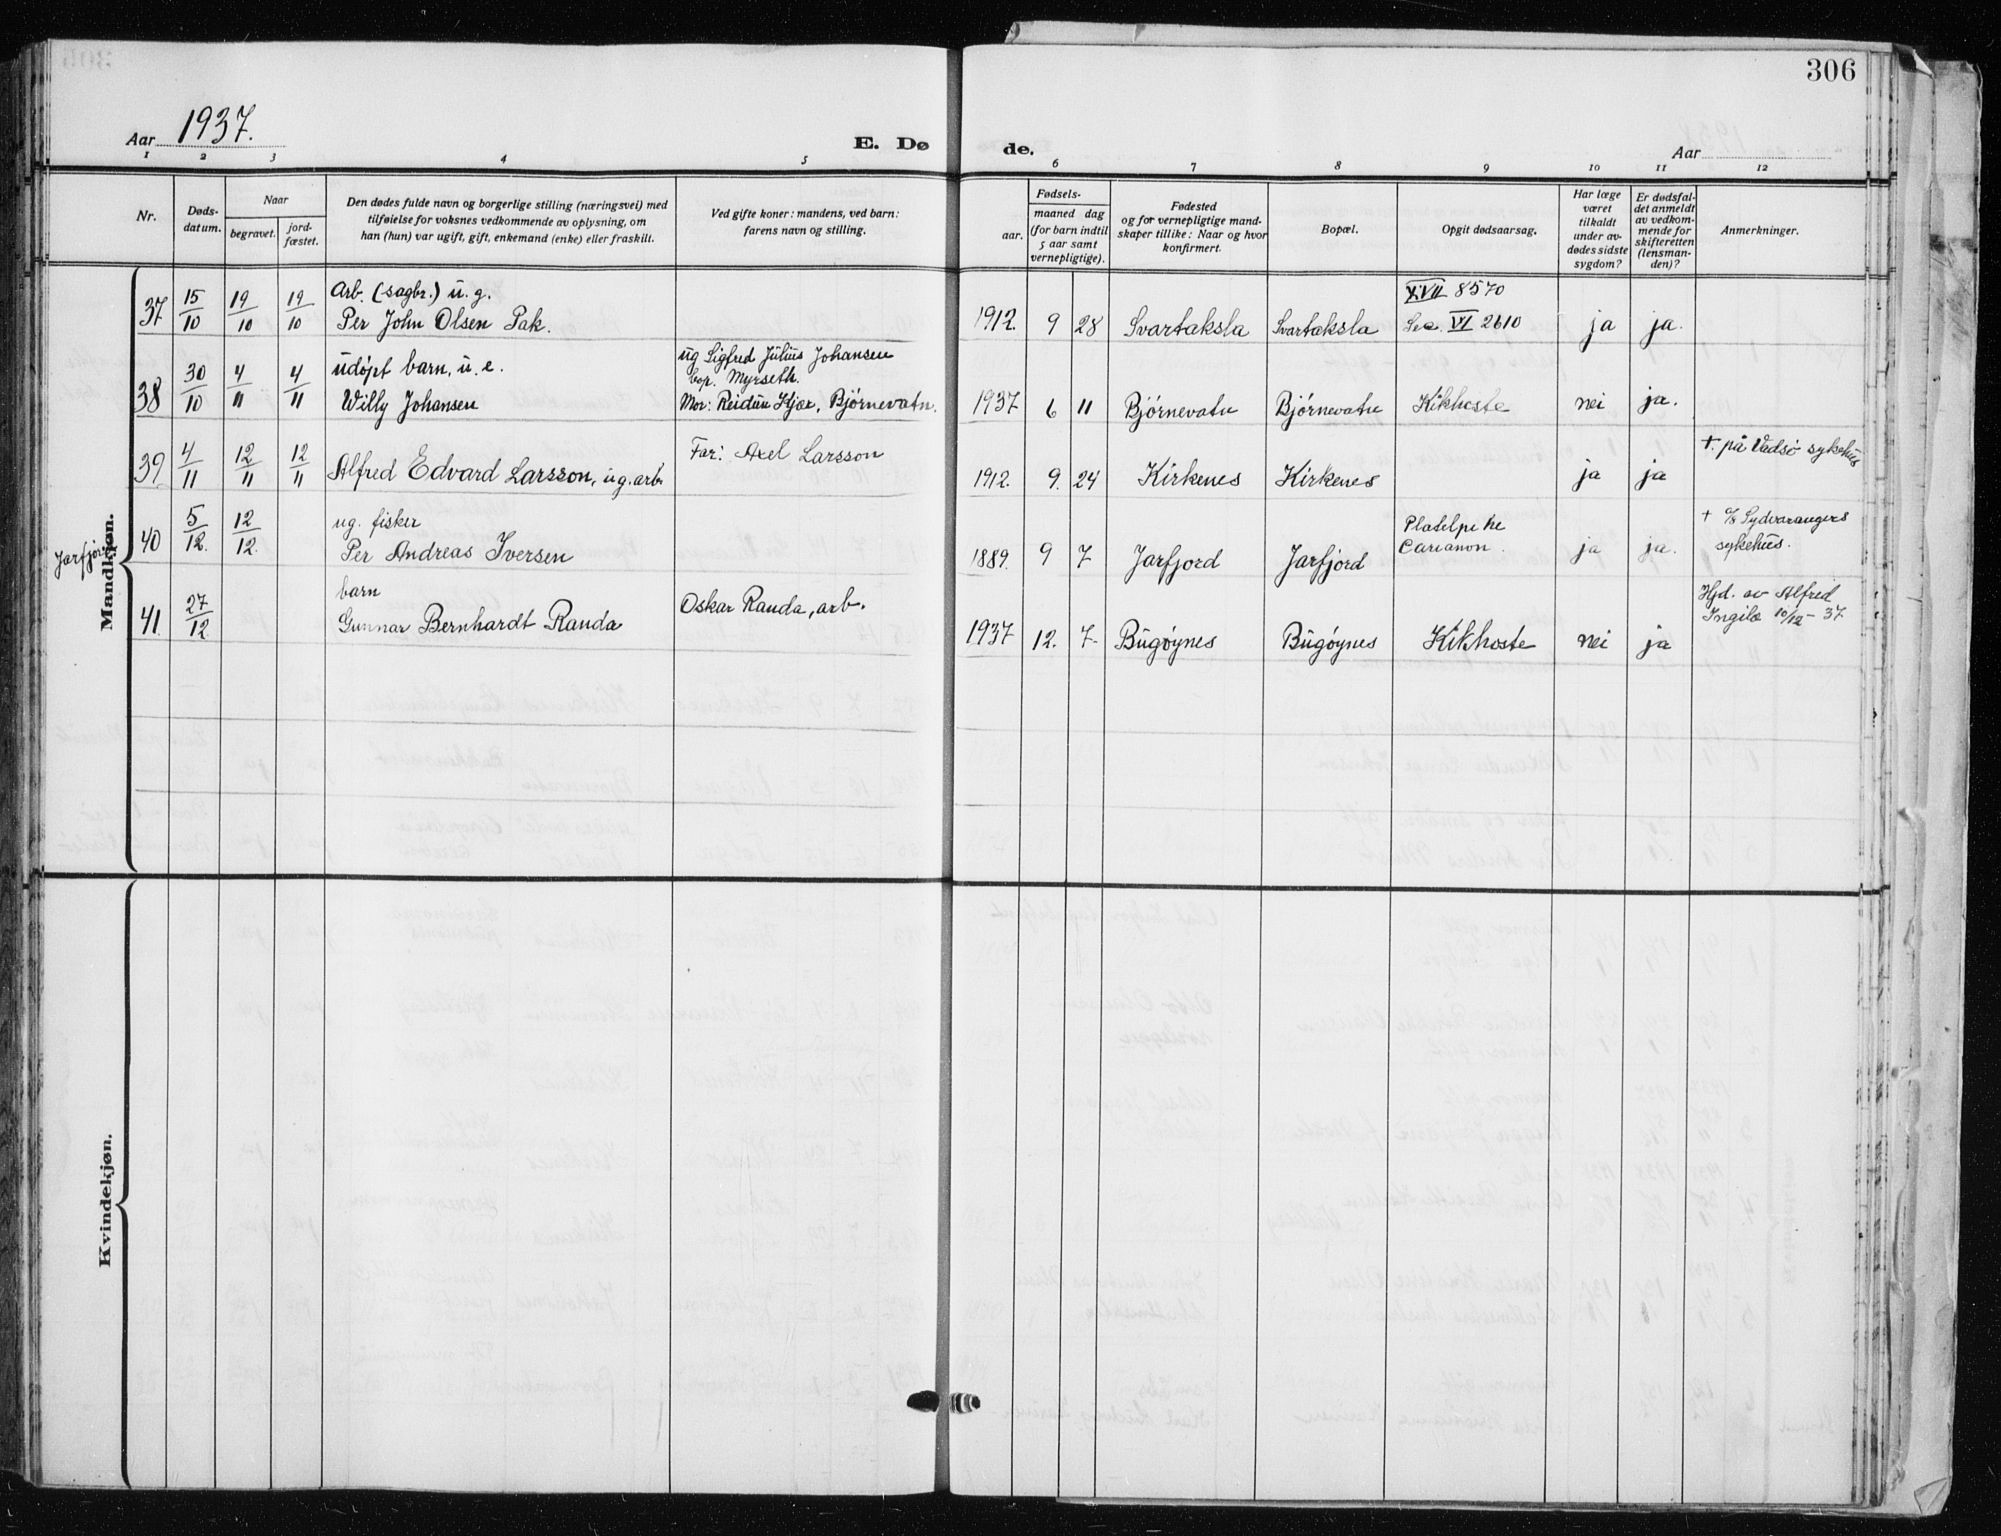 306
Aar 1937.
E. Døde.
Aar
1 2 3 4 5 6 7 8 9 10 11 12
Nr.
Døds-
datum.
Naar
begravet.
jord-
fæstet.
Den dødes fulde navn og borgerlige stilling (næringsvei) med
tilføielse for voksnes vedkommende av oplysning, om
han (hun) var ugift, gift, enkemand (enke) eller fraskilt.
Ved gifte koner: mandens, ved barn:
farens navn og stilling.
Fødsels-
aar.
maaned dag
(for barn indtil
5 aar samt
vernepligtige).
Fødested
og for vernepligtige mand-
skaper tillike: Naar og hvor
konfirmert.
Bopæl.
Opgit dødsaarsag.
Har læge
været
tilkaldt
under av-
dødes sidste
sygdom?
Er dødsfal-
det anmeldt
av vedkom-
mende for
skifteretten
(lensman-
den)?
Anmerkninger.
Mandkjøn.
37 15/10 19/10 19/10
Arb. (sagbr.) u. g.
Per John Olsen Pak.
1912. 9 28 Svartaksla Svartaksla
XVII 8570
VI 2610
ja ja.
38 30/10 4/11 4/11
udøpt barn, u. e.
Willy Johansen
ug Sigfred Julius Johansen
bop. Myrseth.
Mor: Reidun Kjær, Bjørnevatn.
1937 6 11 Bjørnevatn Bjørnevatn Kikhoste nei ja.
39 4/11 12/11 12/11
Alfred Edvard Larsson, ug. arb.
Far: Axel Larsson
1912. 9. 24 Kirkenes Kirkenes ja ja
+ på Vadsø sykehus
Jarfjord
40 5/12. 12/12.
ug. fisker
Per Andreas Iversen
1889. 9 7 Jarfjord Jarfjord
ja ja.
+ Sydvarangers
sykehus.
41. 27/12.
barn
Gunnar Bernhardt Randa
Oskar Randa, arb.
1937 12. 7. Bugøynes Bugøynes Kikhoste nei ja
Hjd. av Alfred
10/12 - 37
Kvindekjøn.